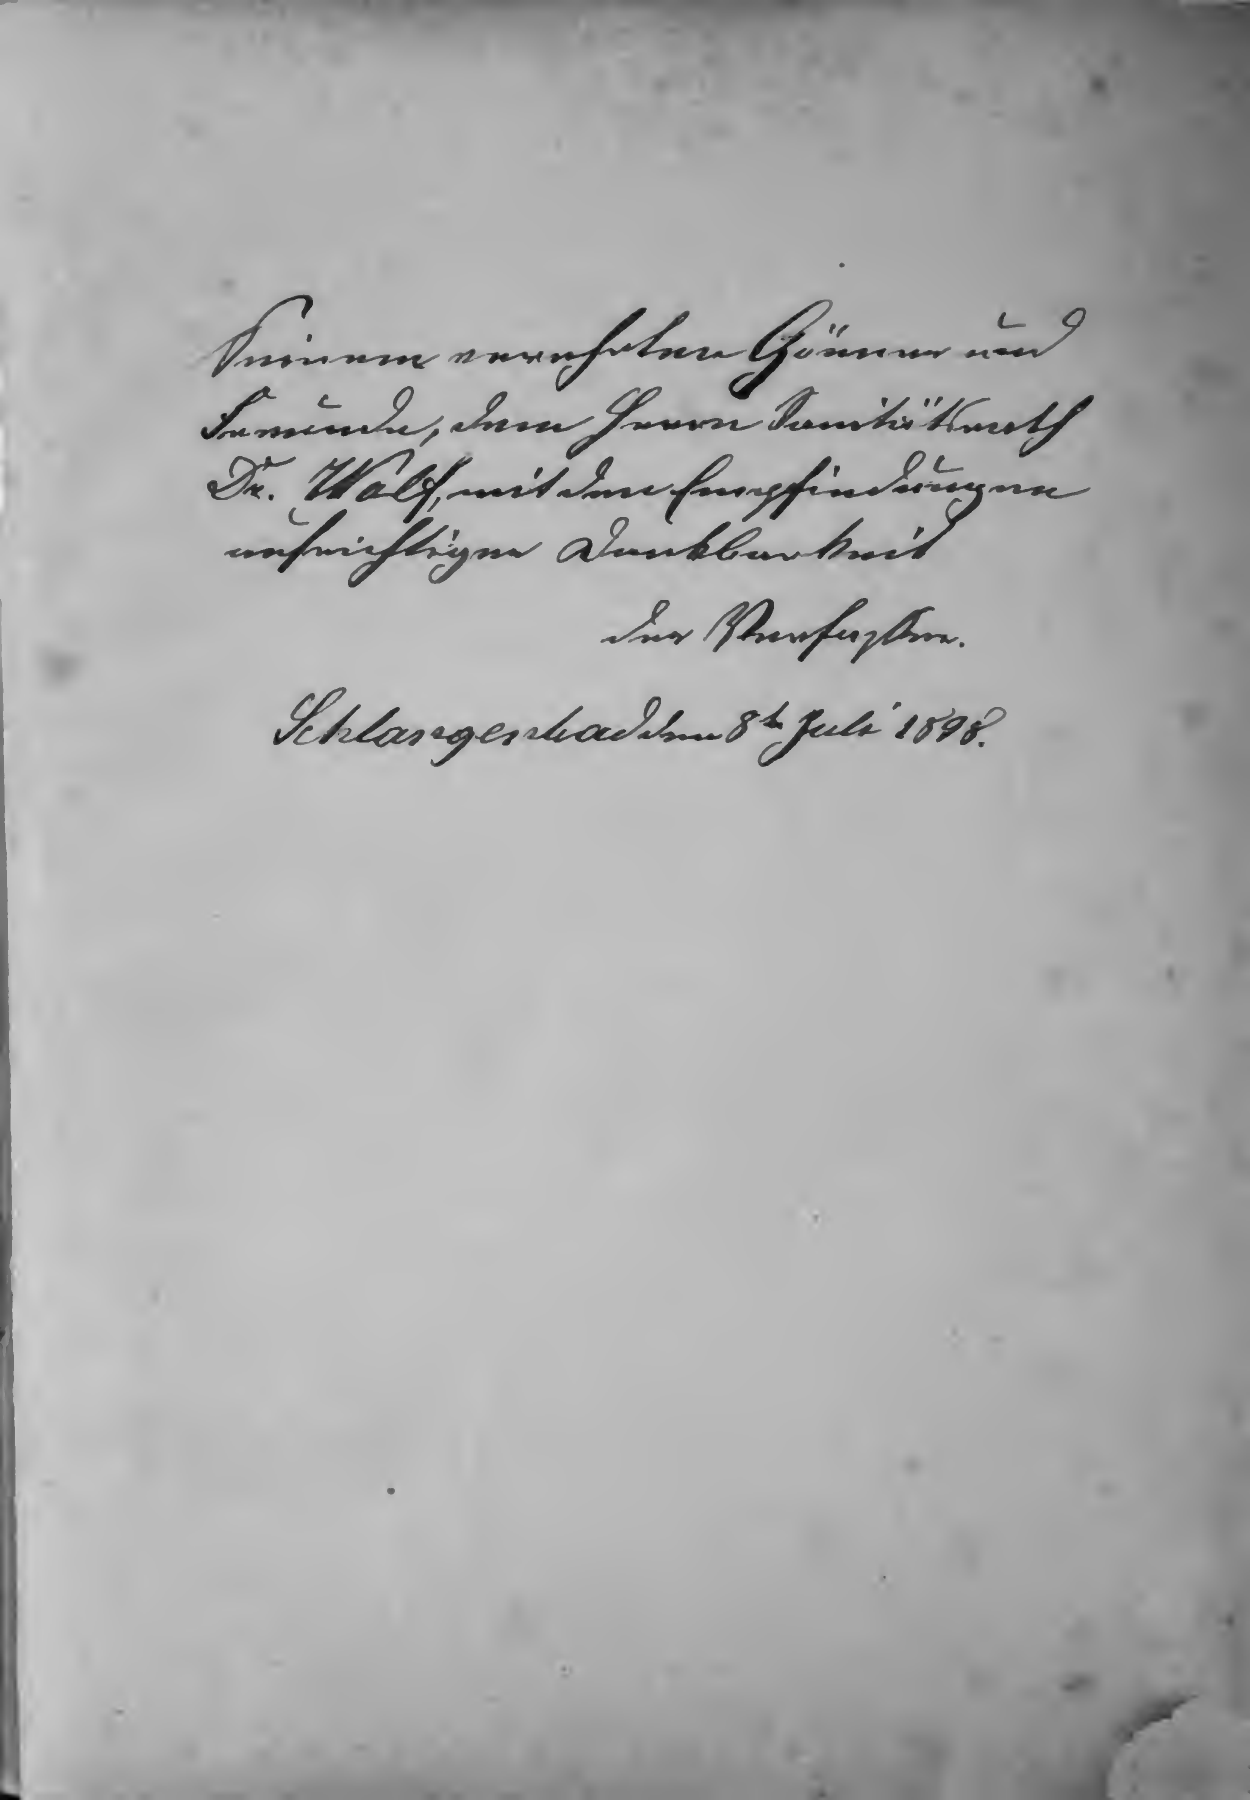 Seinem verehrten Gönner und
Freunde, dem Herrn Sanitätsrath
Dr. Wolf, mit den Empfindungen
aufrichtiger Dankbarkeit
der Verfasser.
Schlangenbad den 8ten Juli 1898.